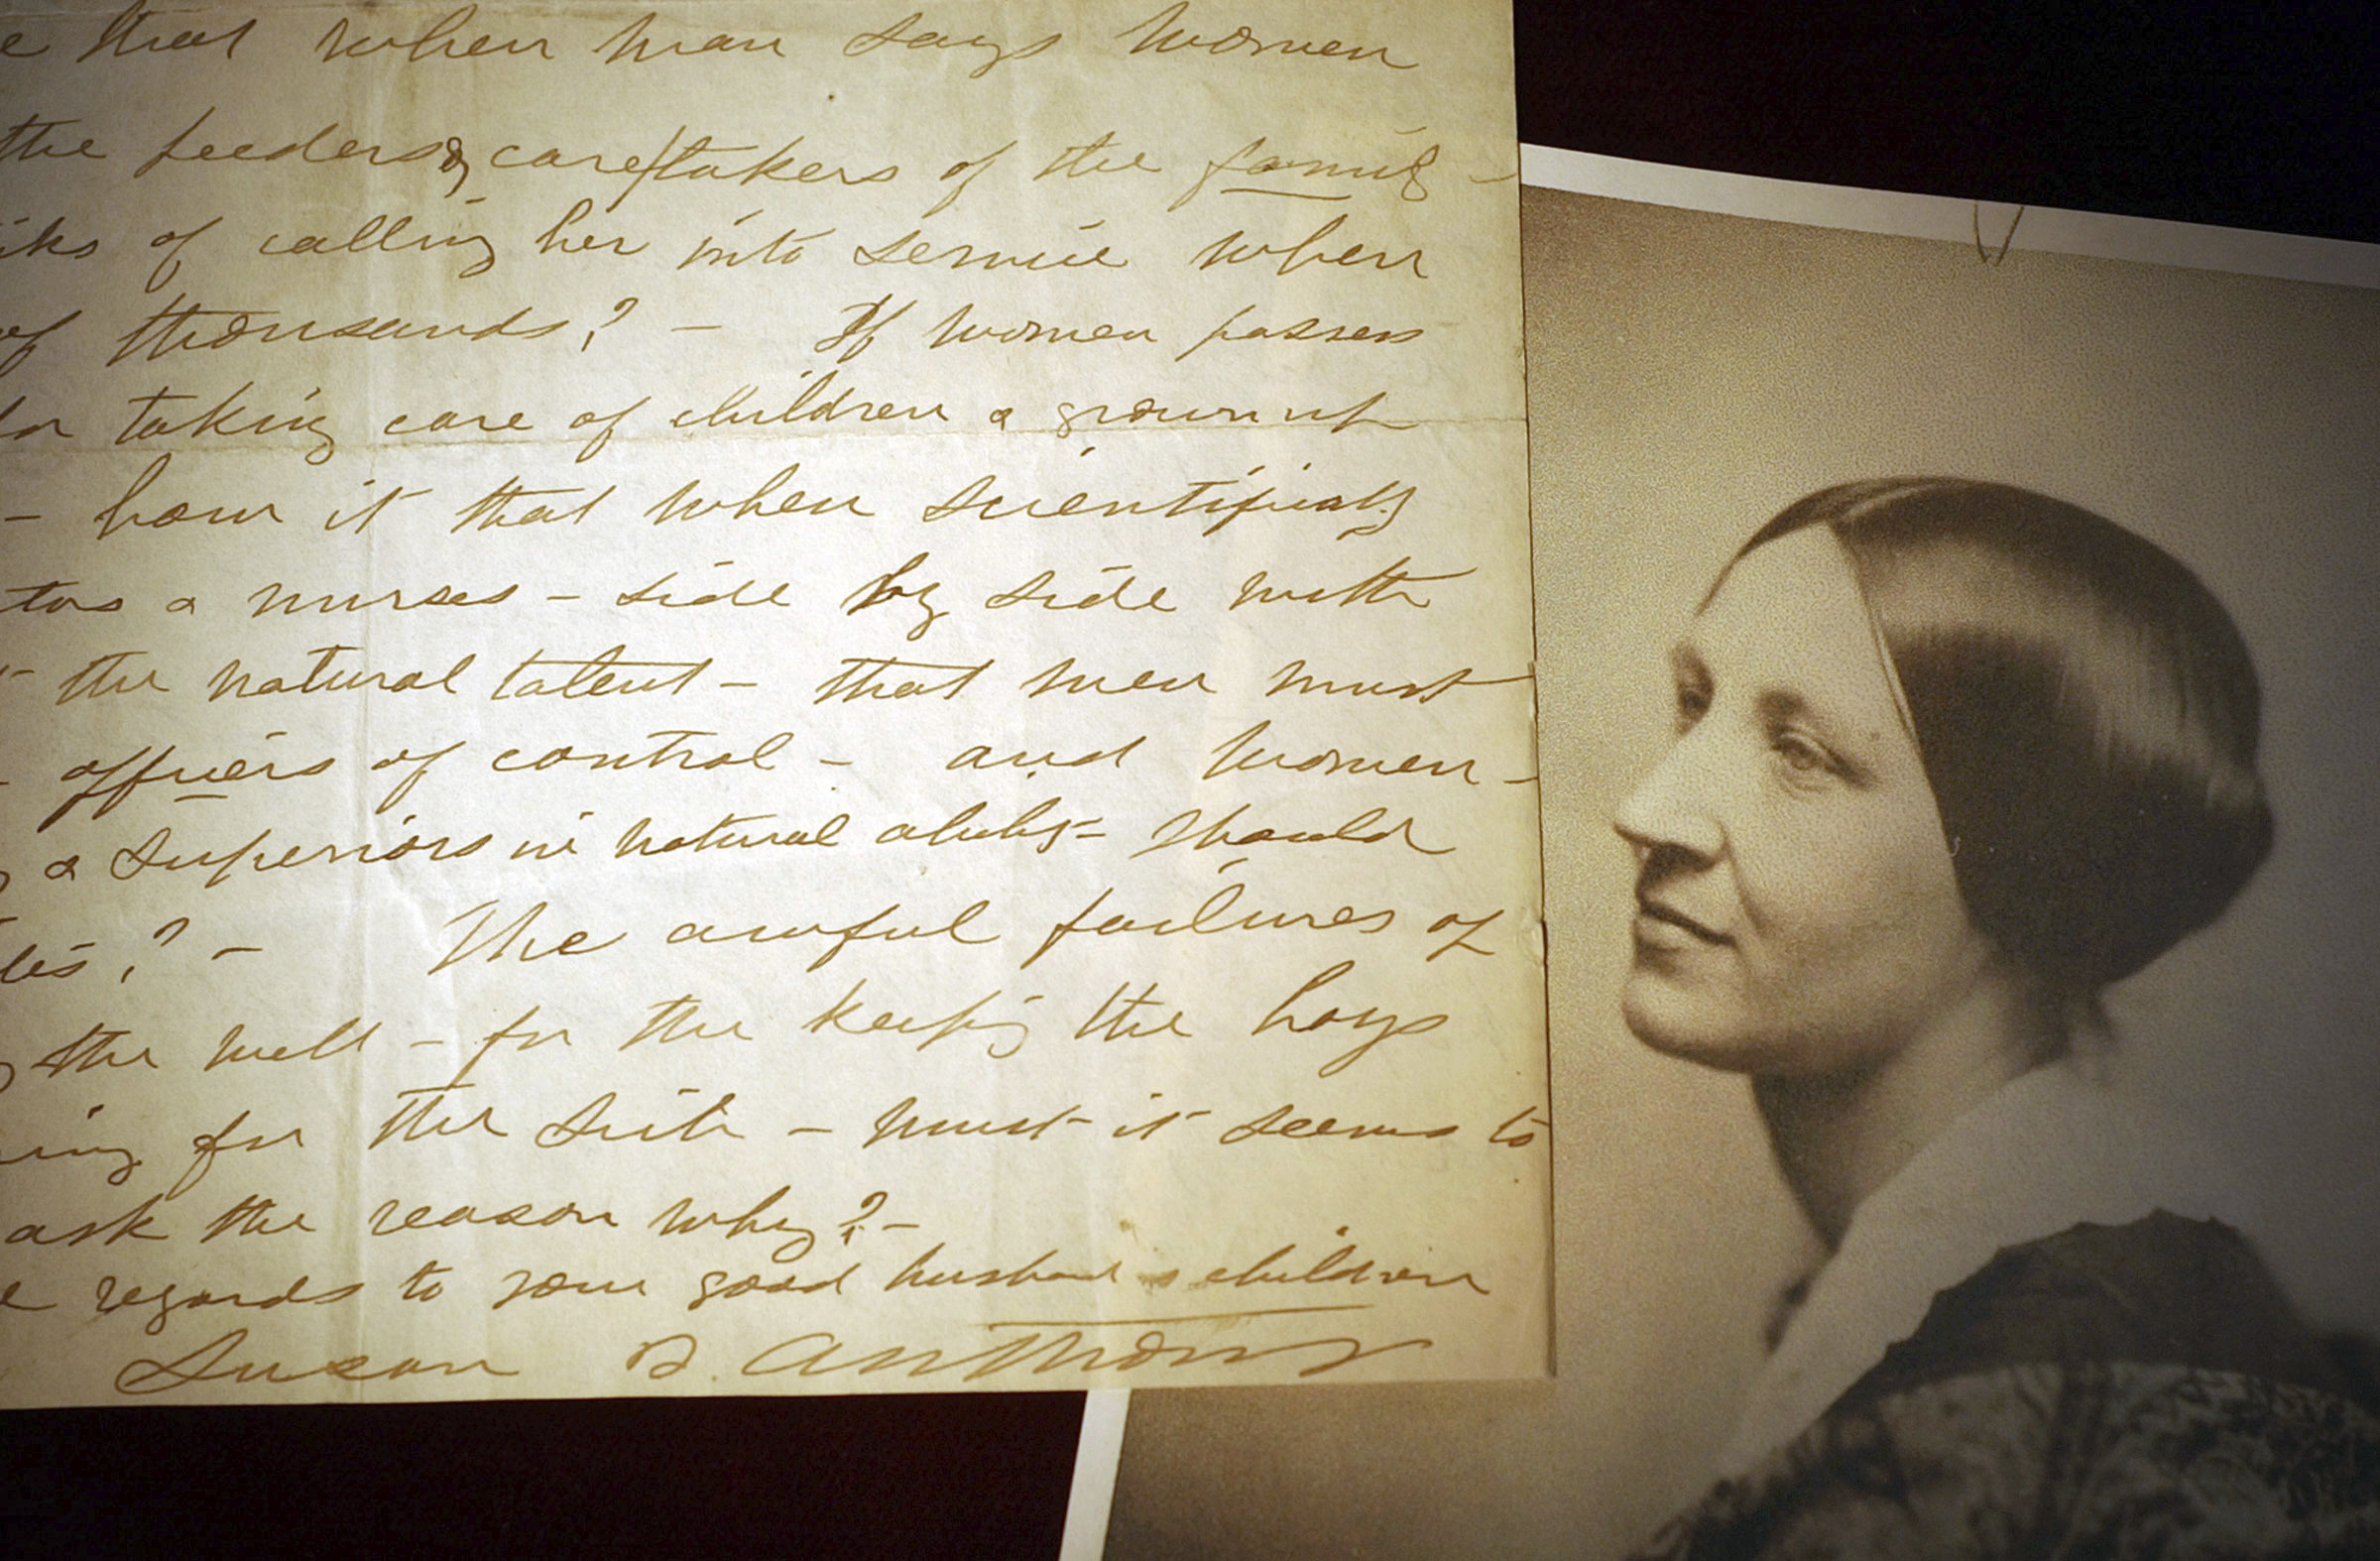 e that when man says women
the feeders & care/takers of the family -
of calling her into service when
of thousands? - If women possess
taking care of children & grown up
- how it that when scientifically
& nurses - side by side with
- the natural talent - that men must
- officers of control - and women -
& superiors in natural ability - should
? - The awful failures of
the well - for the keeping the boys
ing for the sick - must it seems to
ask the reason why? -
regards to your good husband & children
Susan B. Anthony